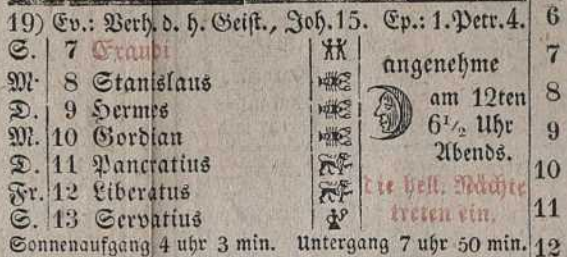 19) Ev.: Verh. d. h. Geist., Joh. 15. Ep.: 1. Petr. 4.
S. 7 Exaudi
M. 8 Stanislaus
D. 9 Hermes
M. 10 Gordian
D. 11 Pancratius
Fr. 12 Liberatus
S. 13 Servatius
angenehme
am 12ten
6 1/2 Uhr
Abends.
die hell. Nächte
treten ein.
Sonnenaufgang 4 uhr 3 min. Untergang 7 uhr 50 min.
6
7
8
9
10
11
12